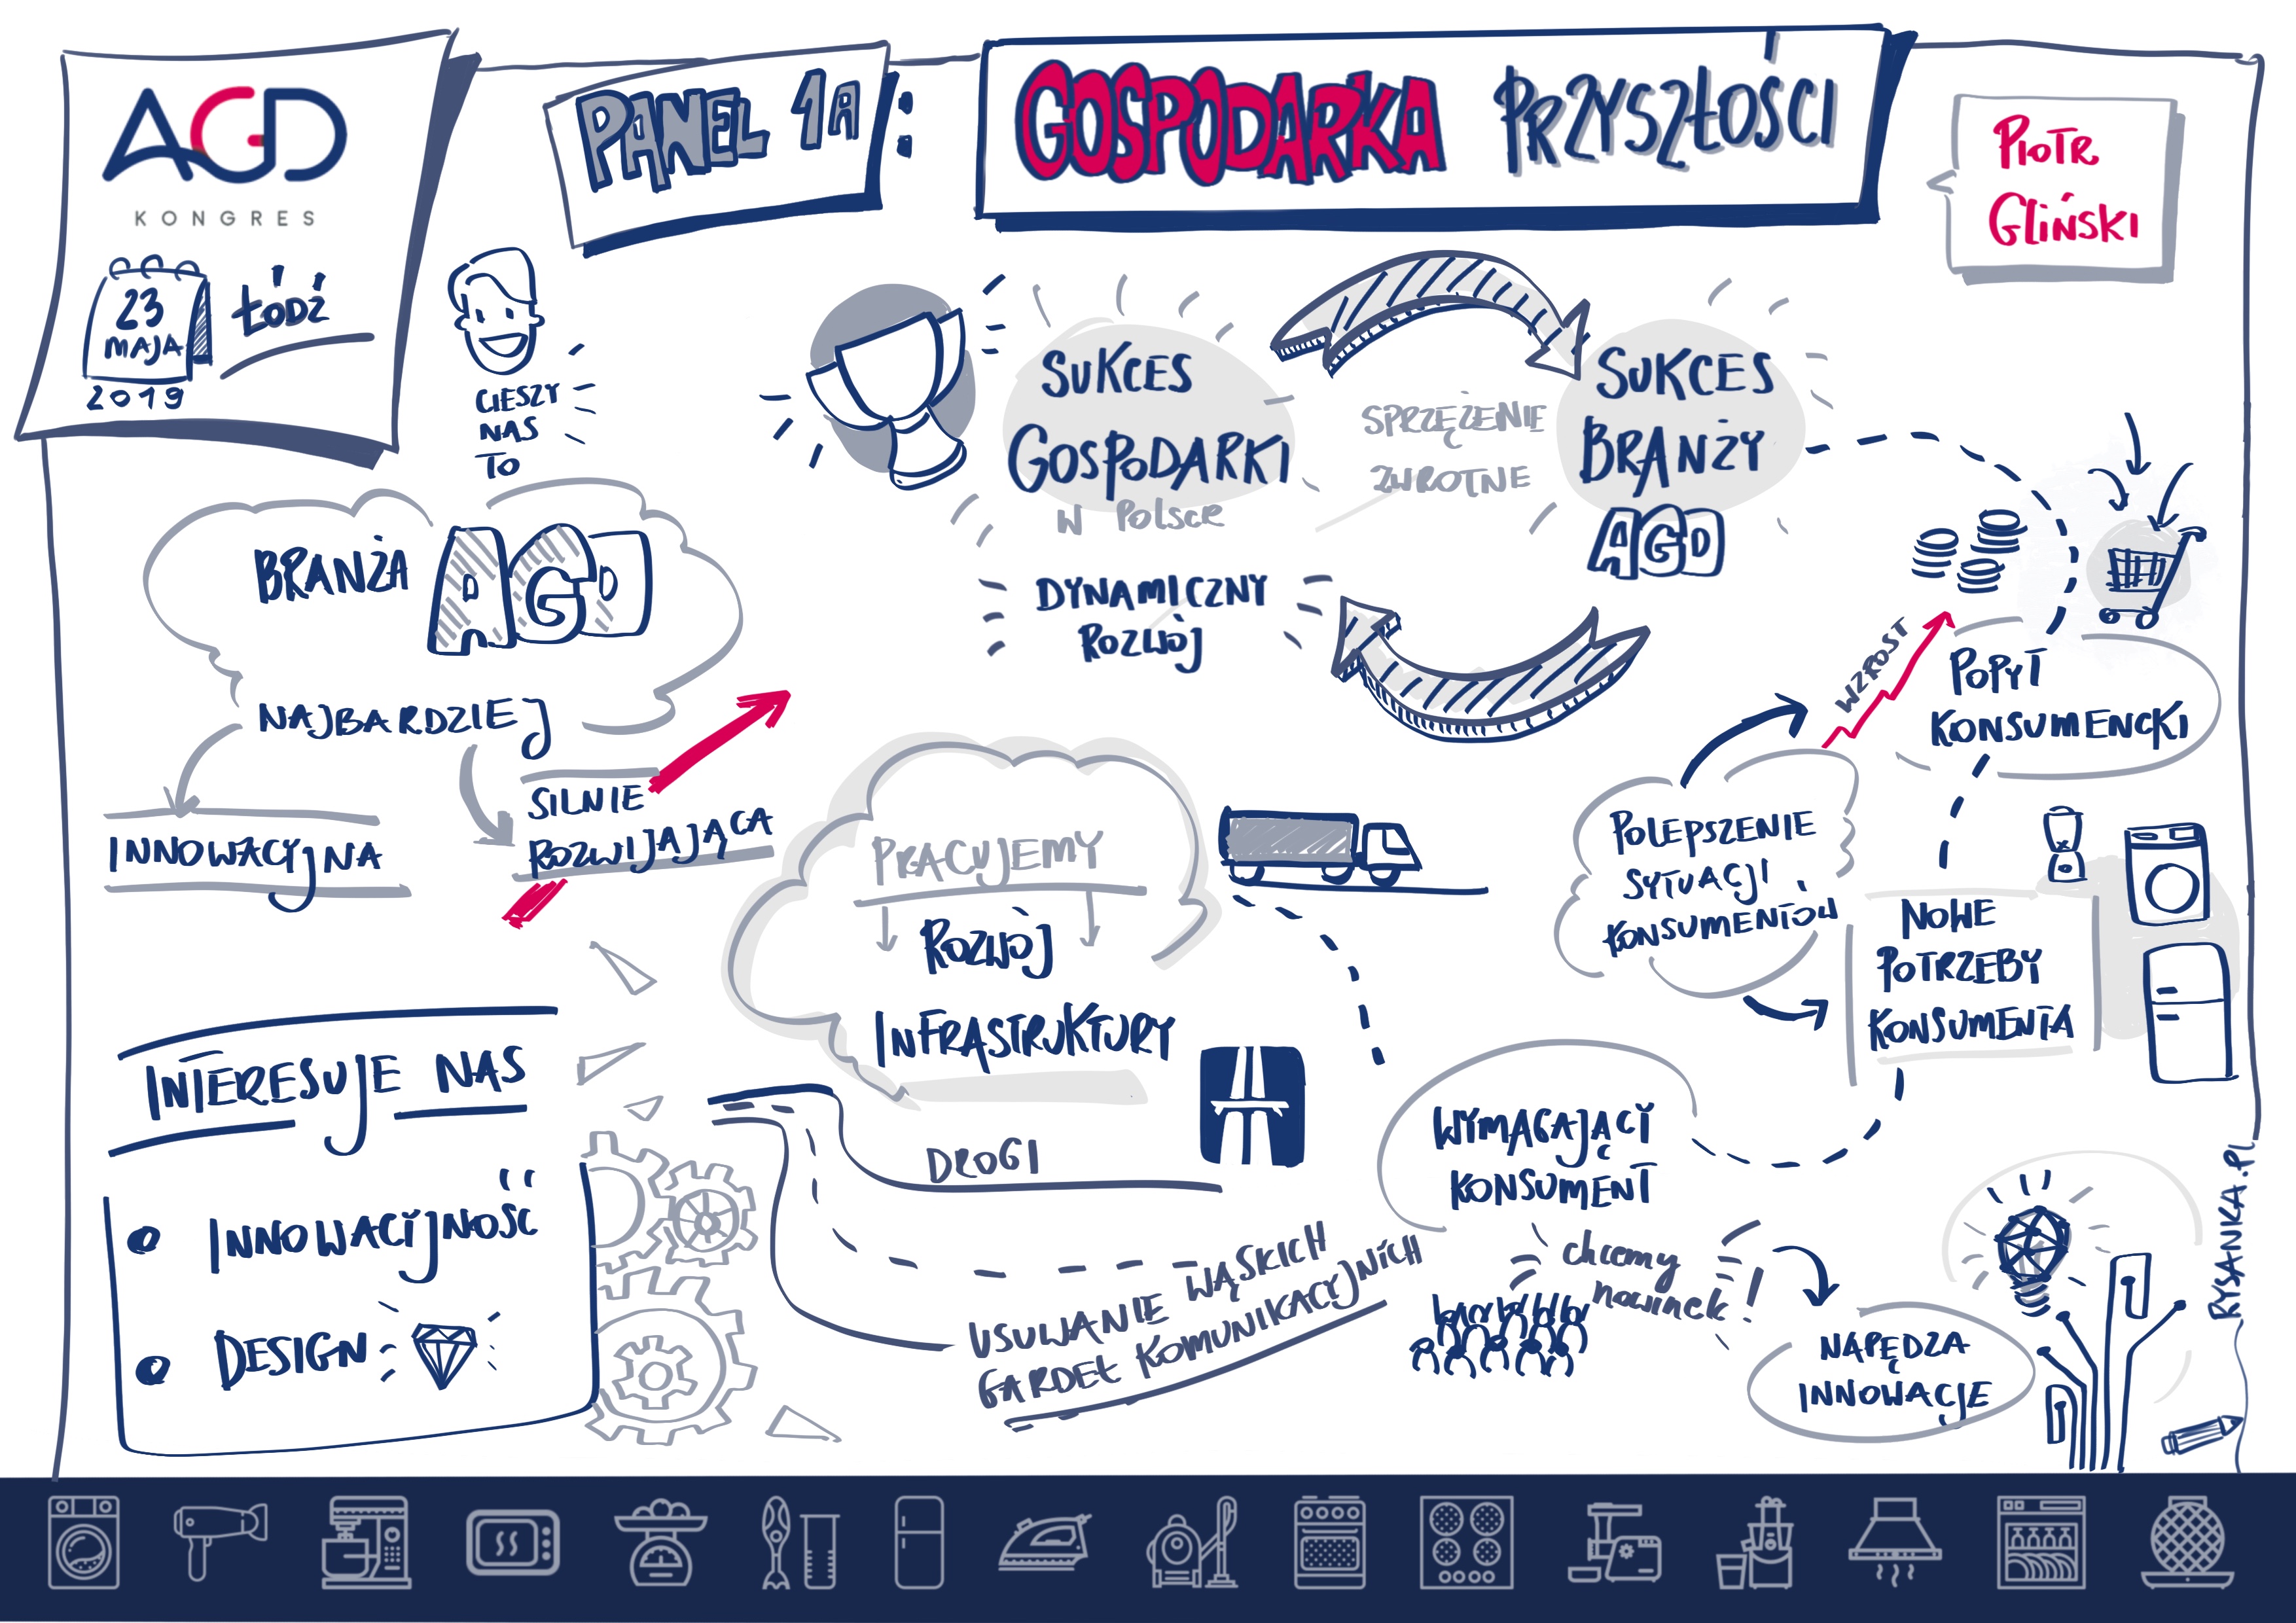 AGD
KONGRES
23
MAJA
2019
ŁÓDŹ
PANEL 1A :
GOSPODARKA PRZYSZŁOŚCI
PIOTR
GLIŃSKI
CIESZY
NAS
TO
BRANŻA AGD
NAJBARDZIEJ
INNOWACYJNA
SILNIE
ROZWIJAJĄCA
SUKCES
GOSPODARKI
W POLSCE
DYNAMICZNY
ROZWÓJ
SPRZĘŻENIE
ZWROTNE
SUKCES
BRANŻY
AGD
WZROST
POPYT
KONSUMENCKI
POLEPSZENIE
SYTUACJI
KONSUMENTÓW
NOWE
POTRZEBY
KONSUMENTA
PRACUJEMY
ROZWÓJ
INFRASTRUKTURY
DROGI
USUWANIE WĄSKICH
GARDEŁ KOMUNIKACYJNYCH
WYMAGAJĄCY
KONSUMENT
chcemy
nowinek!
NAPĘDZA
INNOWACJE
INTERESUJE NAS
INNOWACYJNOŚĆ
DESIGN
RYSANKA.PL